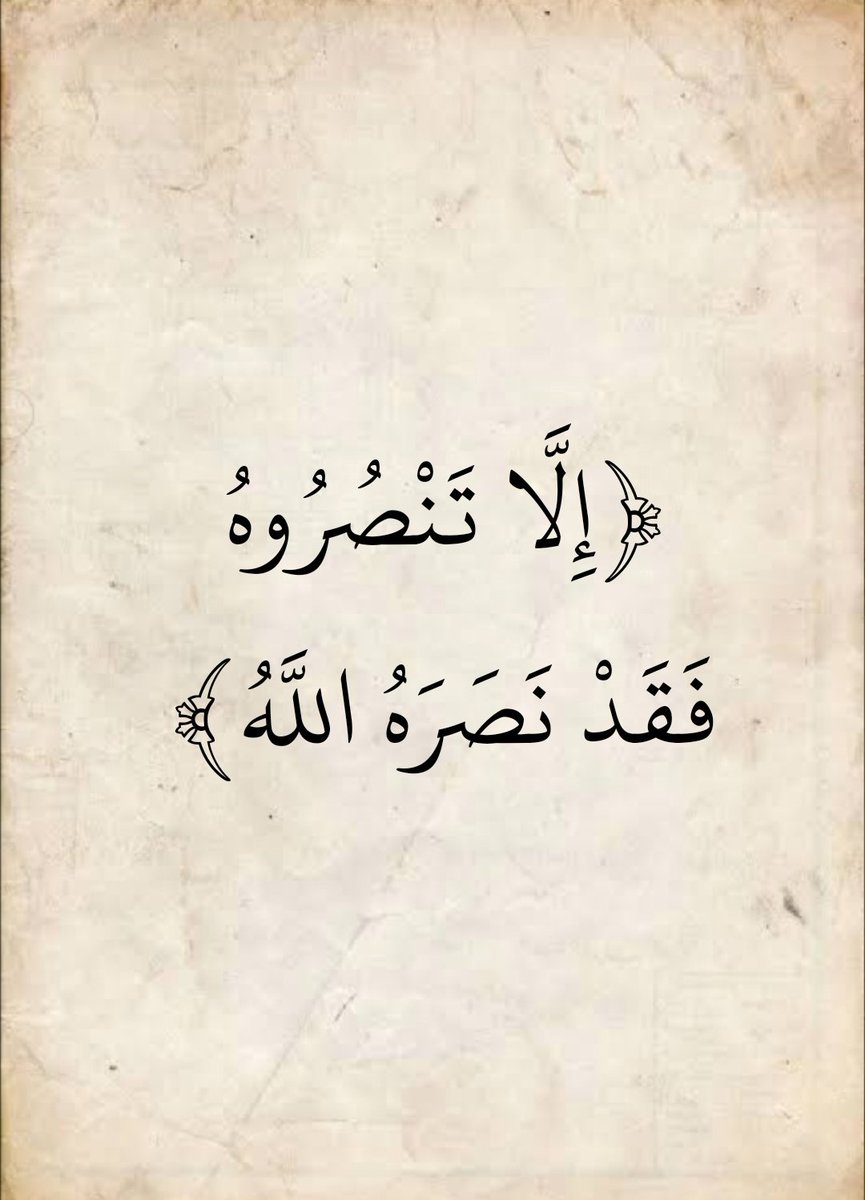 ﴿إِلَّا تَنْصُرُوهُ
فَقَدْ نَصَرَهُ اللَّهُ﴾